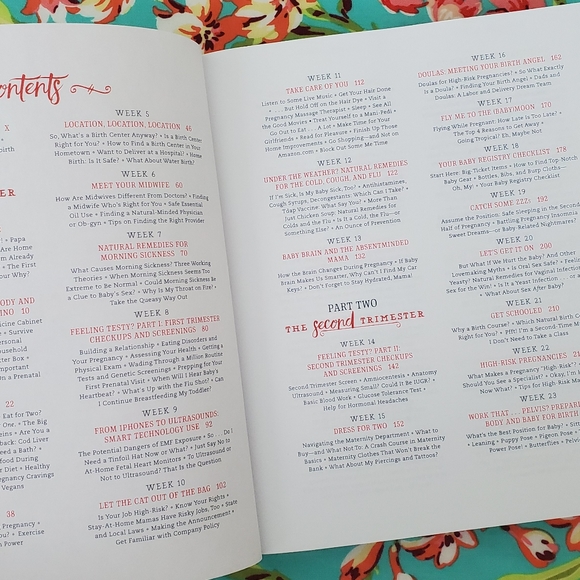 ontents
X
birth
ER
! • Papa
Are Home
m Already
• The First
Your Why?
ODY AND
INO 10
dicine Cabinet
• Survive
Personal
ousehold
tter Box •
Important
m a Prenatal
22
Eat for Two?
t One. The Big
ns • Are You a
back: Cod Liver
Need a Bath? •
ood During
e Diet • Healthy
gnancy Cravings
Vegans
38
Pregnancy •
u? • Exercise
n Power
WEEK 5
LOCATION, LOCATION, LOCATION 46
So, What's a Birth Center Anyway? • Is a Birth
Right for You? • How to Find a Birth Center in Your
Hometown • Want to Deliver at a Hospital? • Home
Birth: Is It Safe? • What About Water Birth?
WEEK 6
MEET YOUR MIDWIFE 60
How Are Midwives Different From Doctors? • Finding
a Midwife Who's Right for You • Safe Essential
Oil Use • Finding a Natural-Minded Physician
or Ob-gyn • Tips on Finding the Right Provider
WEEK 7
NATURAL REMEDIES FOR
MORNING SICKNESS 70
What Causes Morning Sickness? Three Working
Theories • When Morning Sickness Seems Too
Extreme to Be Normal • Could Morning Sickness Be
a Clue to Baby's Sex? • Why Is My Throat on Fire? •
Take the Queasy Way Out
WEEK 8
FEELING TESTY? PART I: FIRST TRIMESTER
CHECKUPS AND SCREENINGS 80
Building a Relationship • Eating Disorders and
Your Pregnancy • Assessing Your Health • Getting a
Physical Exam • Wading Through a Million Routine
Tests and Genetic Screenings • Prepping for Your
First Prenatal Visit • When Will I Hear Baby's
Heartbeat? • What's Up with the Flu Shot? • Can
I Continue Breastfeeding My Toddler?
WEEK 9
FROM IPHONES TO ULTRASOUNDS:
SMART TECHNOLOGY USE 92
The Potential Dangers of EMF Exposure • So . . . Do I
Need a Tinfoil Hat Now or What? • Just Say No to
At-Home Fetal Heart Monitors • To Ultrasound or
Not to Ultrasound? That Is the Question
WEEK 10
LET THE CAT OUT OF THE BAG 102
Is Your Job High-Risk? • Know Your Rights •
Stay-At-Home Mamas Have Risky Jobs, Too • State
and Local Laws • Making the Announcement •
Get Familiar with Company Policy
WEEK 11
TAKE CARE OF YOU 112
Listen to Some Live Music • Get Your Hair Done
But Hold Off on the Hair Dye • Visit a
Pregnancy Massage Therapist • Sleep • See All
the Good Movies • Treat Yourself to a Mani-Pedi •
Go Out to Eat . . . A Lot • Make Time for Your
Girlfriends • Read for Pleasure • Finish Up Those
Home Improvements • Go Shopping—and Not on
Amazon.com • Block Out Some Me Time
WEEK 12
UNDER THE WEATHER? NATURAL REMEDIES
FOR THE COLD, COUGH, AND FLU 122
If I'm Sick, Is My Baby Sick, Too? • Antihistamines,
Cough Syrups, Decongestants: Which Can I Take? •
Tdap Vaccine: What Say You? • More Than
Just Chicken Soup: Natural Remedies for
Colds and the Flu • Is It a Cold, the Flu—or
Something Else? • An Ounce of Prevention
WEEK 13
BABY BRAIN AND THE ABSENTMINDED
MAMA 132
How the Brain Changes During Pregnancy • If Baby
Brain Makes Us Smarter, Why Can't I Find My Car
Keys? • Don't Forget to Stay Hydrated, Mama!
PART TWO
THE second TRIMESTER
WEEK 14
FEELING TESTY? PART II:
SECOND TRIMESTER CHECKUPS
AND SCREENINGS 142
Second Trimester Screen • Amniocentesis • Anatomy
Ultrasound • Measuring Small? Could It Be IUGR? •
Basic Blood Work • Glucose Tolerance Test •
Help for Hormonal Headaches
WEEK 15
DRESS FOR TWO 152
Navigating the Maternity Department • What to
Buy—and What Not To: A Crash Course in Maternity
Basics • Maternity Clothes That Won't Break the
Bank • What About My Piercings and Tattoos?
WEEK 16
DOULAS: MEETING YOUR BIRTH ANGEL 162
Doulas for High-Risk Pregnancies? • So What Exactly
Is a Doula? • Finding Your Birth Angel • Dads and
Doulas: A Labor and Delivery Dream Team
WEEK 17
FLY ME TO THE (BABY)MOON 170
Flying While Pregnant: How Late Is Too Late? •
The Top 4 Reasons to Get Away •
Going Tropical? Eh, Maybe Not
WEEK 18
YOUR BABY REGISTRY CHECKLIST 178
Start Here: Big-Ticket Items • How to Find Top-Notch
Baby Gear • Bottles, Bibs, and Burp Cloths—
Oh, My! • Your Baby Registry Checklist
WEEK 19
CATCH SOME ZZZs 192
Assume the Position: Safe Sleeping in the Second
Half of Pregnancy • Battling Pregnancy Insomnia
Sweet Dreams—or Baby Related Nightmares?
WEEK 20
LET'S GET IT ON 200
But What If We Hurt the Baby? And Other
Lovemaking Myths • Is Oral Sex Safe? • Feelin
Yeasty? Natural Remedies for Vaginal Infection
Sex for the Win! • Is It a Yeast Infection . . . o
• What About Sex After Baby?
WEEK 21
GET SCHOOLED 210
Why a Birth Course? • Which Natural Birth C
Right for You? • Pfft! I'm a Second-Time M
I Don't Need to Take a Class
WEEK 22
HIGH-RISK PREGNANCIES 21
What Makes a Pregnancy "High Risk"? •
Should You See a Specialist? • Okay, I'm
Now What? • Tips for High-Risk M
WEEK 23
WORK THAT . . . PELVIS? PREPARI
BODY AND BABY FOR BIRTH
What's the Best Position for Baby? • Sittin
• Leaning • Puppy Pose • Pigeon Pose •
Power Pose! • Butterflies • Pelvi